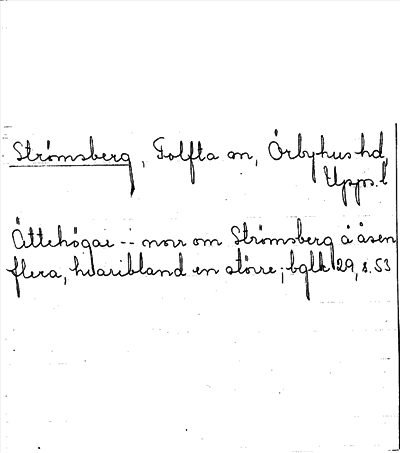 Strömsberg, Tolfta sn, Örbyhus hd,
Upps. l
Ättehögar -- norr om Strömsberg å åsen
flera, hvaribland en större; bglk 29, s. 53